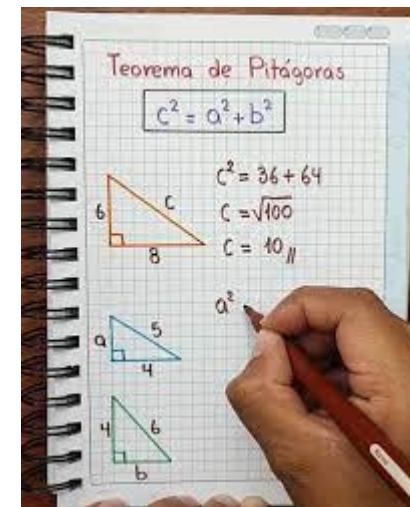 Teorema de Pitágoras
c² = a² + b²
6
c
8
c² = 36 + 64
c = √100
c = 10 //
a
5
4
a²
4
6
b